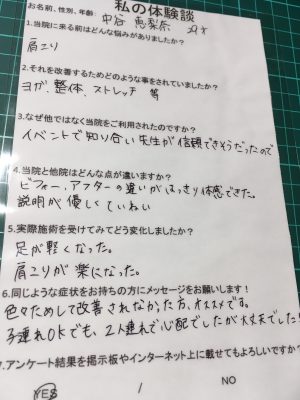 私の体験談
お名前、性別、年齢 中谷 恵梨奈 29才
1.当院に来る前はどんな悩みがありましたか？
肩コリ
2.それを改善するためどのような事をされていましたか？
ヨガ、整体、ストレッチ 等
3.なぜ他ではなく当院をご利用されたのですか？
イベントで知り合い先生が信頼できそうだったので
4.当院と他院はどんな点が違いますか？
ビフォー、アフターの違いがはっきり体感できた。
説明が優しくていねい
5.実際施術を受けてみてどう変化しましたか？
足が軽くなった。
肩こりが楽になった。
6.同じような症状をお持ちの方にメッセージをお願いします！
色々ためして改善されなかった方、オススメです。
子連れOKでも、2人連れで心配でしたが大丈夫でした！
7.アンケート結果を掲示板やインターネット上に載せてもよろしいですか？
YES / NO